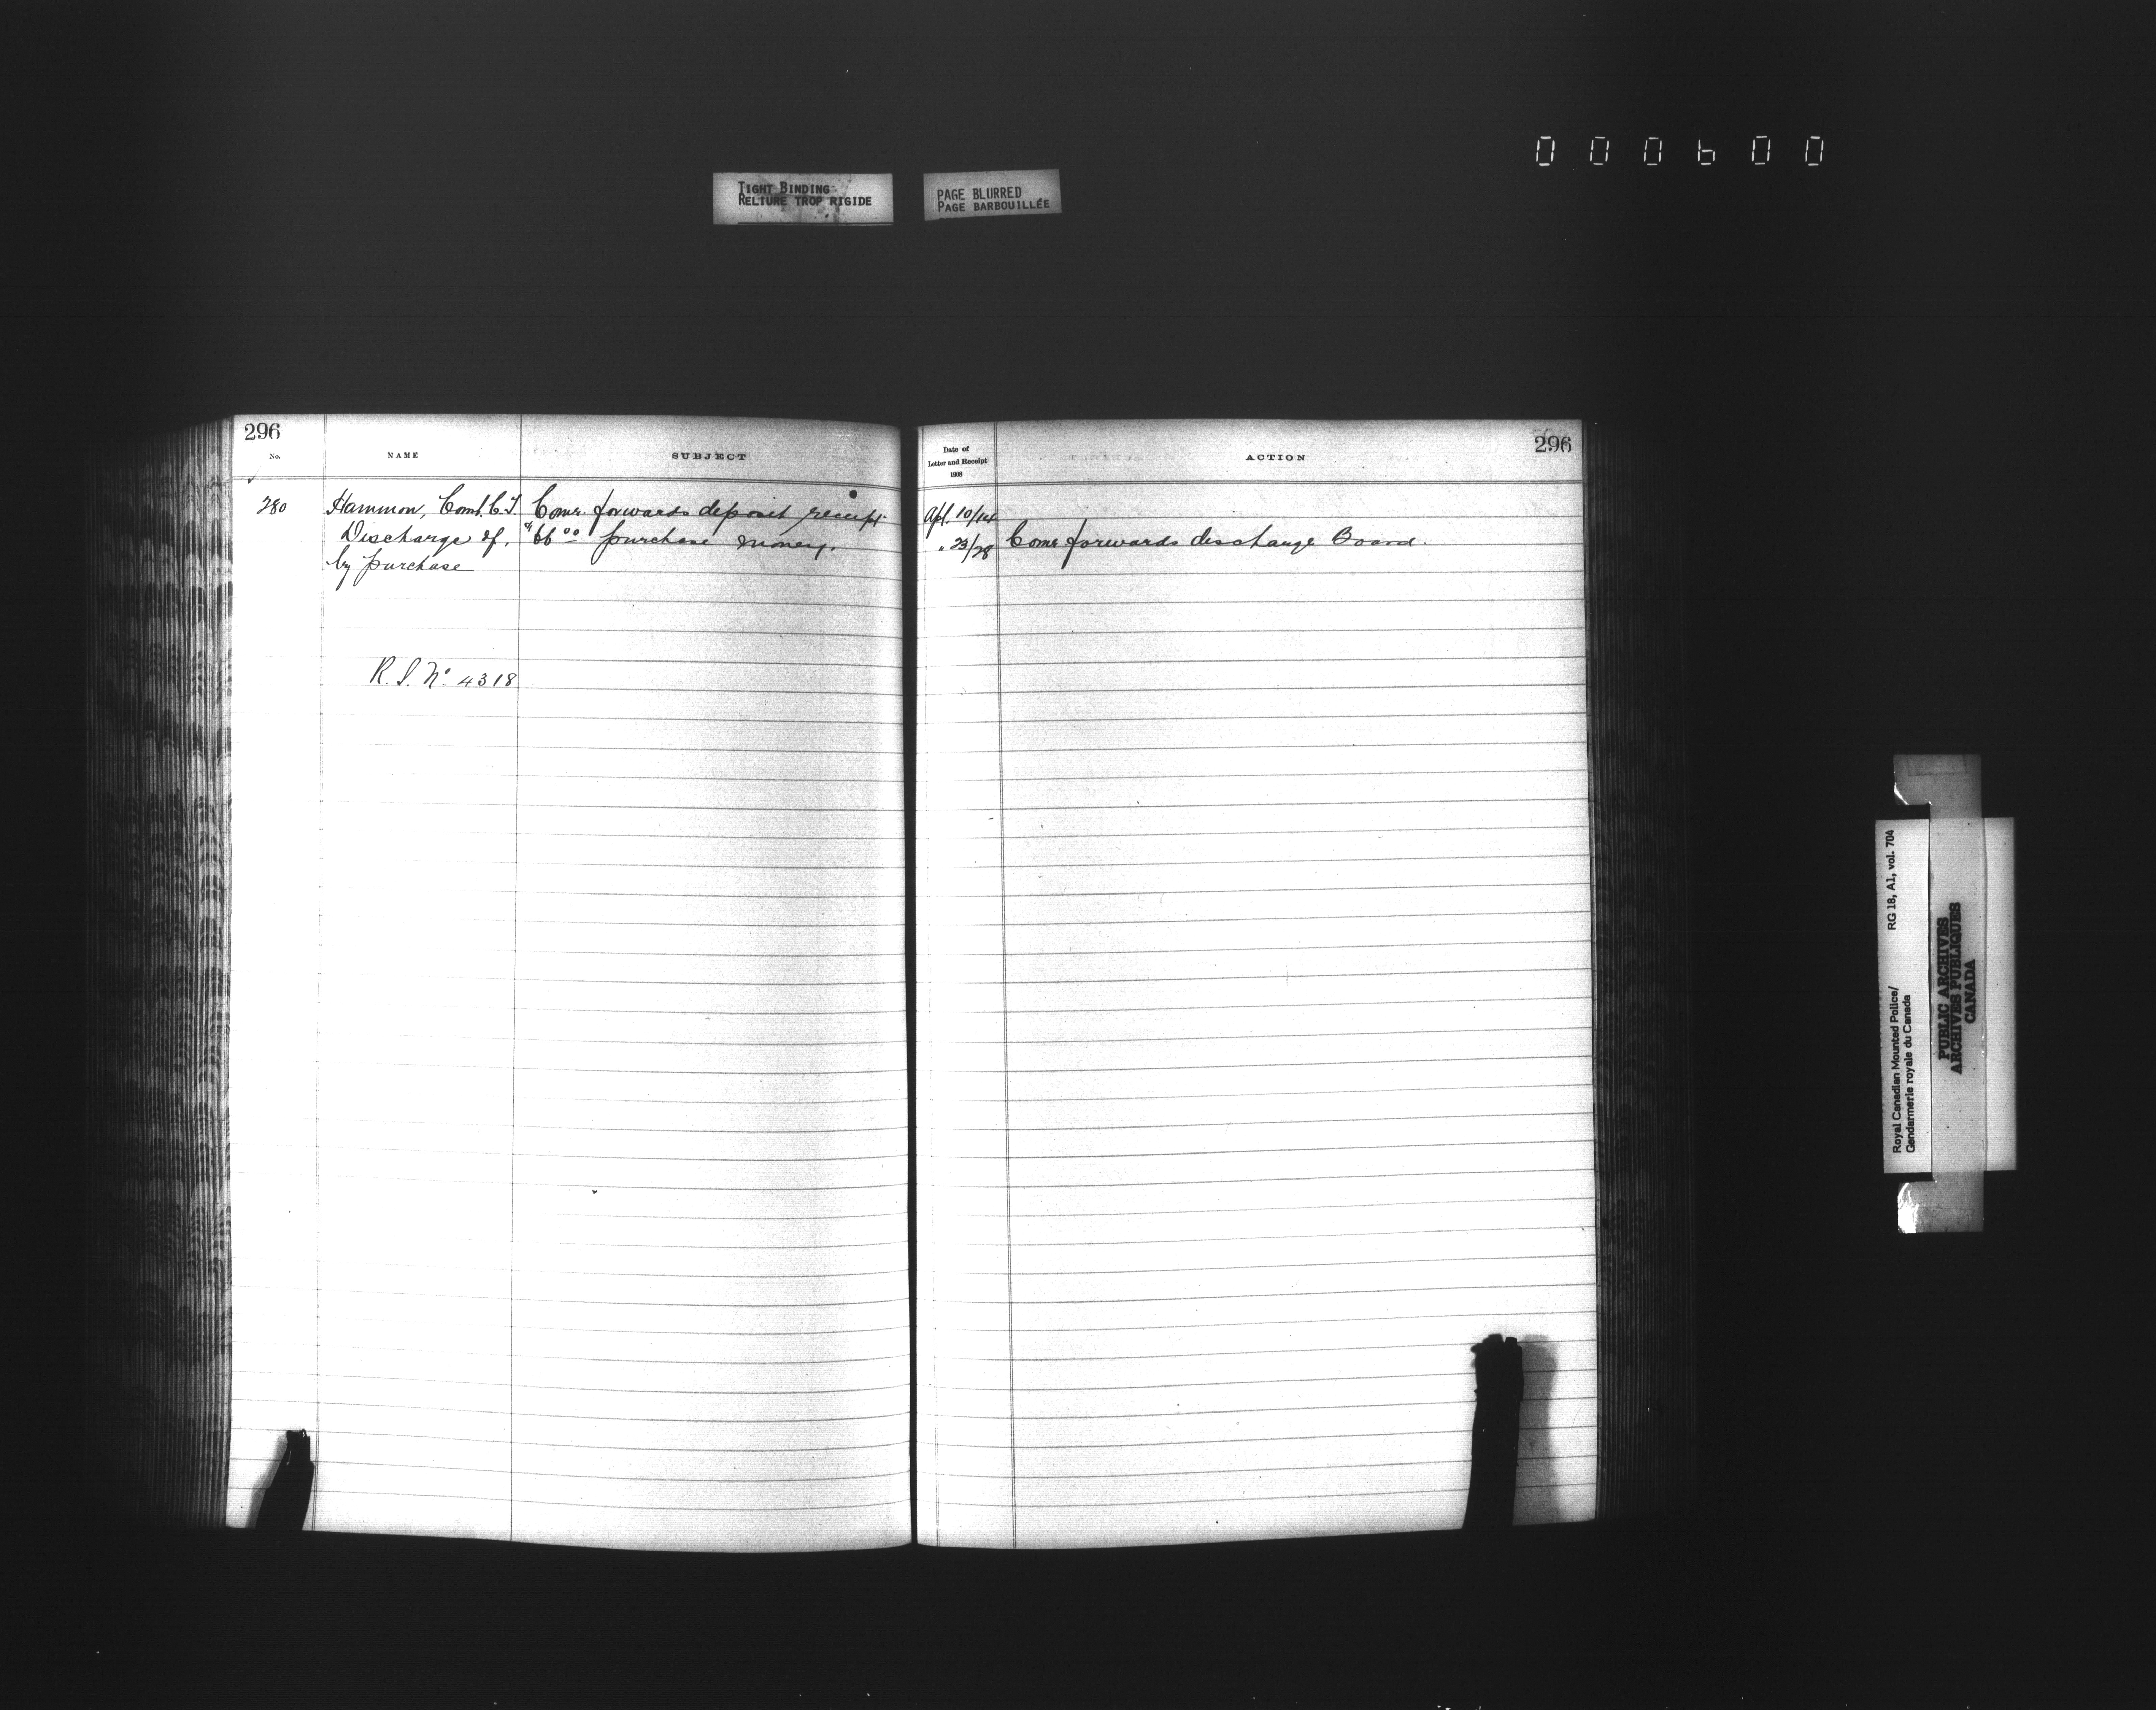 000600
TIGHT BINDING
RELIURE TROP RIGIDE
PAGE BLURRED
PAGE BARBOUILLÉE
296
No.
NAME
SUBJECT
280
Hammon, Const. C.T.
Discharge of,
by purchase
R. S. No. 4318
Comr. forwards deposit receipt
$66 00 purchase money.
296
Date of
Letter and Receipt
1908
ACTION
Apl. 10/14
" 23/28 Comr forwards discharge Board.
Royal Canadian Mounted Police/ RG 18, A1, vol. 704
Gendarmerie royale du Canada
PUBLIC ARCHIVES
ARCHIVES PUBLIQUES
CANADA